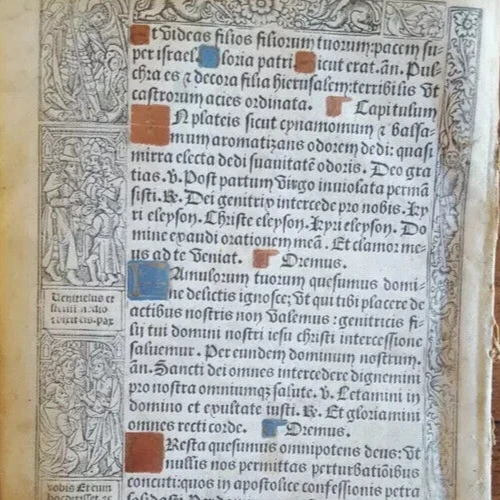 Et videas filios filiorum tuorum: pacem su-
per israel. Gloria patri. Sicut erat. añ. Pul-
chra es ⁊ decora filia hierusalem: terribilis vt
castrorum acies ordinata. Capitulum
IN plateis sicut cynamomum ⁊ balsa-
mum aromatizans odorem dedi: quasi
mirra electa dedi suauitatē odoris. Deo gra
tias. v. Post partum virgo inuiolata permā
sisti. R. Dei genitrix intercede pro nobis. Ky
ri eleyson. Christe eleyson. Kyri eleyson. Do
mine exaudi orationem meā. Et clamor me-
us ad te veniat. Oremus.
FAmulorum tuorum quesumus domi-
ne delictis ignosce; vt qui tibi placere de
actibus nostris non valemus: genitricis fi-
lij tui domini nostri iesu christi intercessione
saluemur. Per eundem dominum nostrum.
añ. Sancti dei omnes intercedere dignemini
pro nostra omniumqꝫ salute. v. Letamini in
domino et exultate iusti. R. Et gloriamini
omnes recti corde. Oremus.
PResta quesumus omnipotens deus: vt
nullis nos permittas perturbatiōibus
concuti: quos in apostolice confessionis petra
et
dixit eis. pax
vobis Et cum